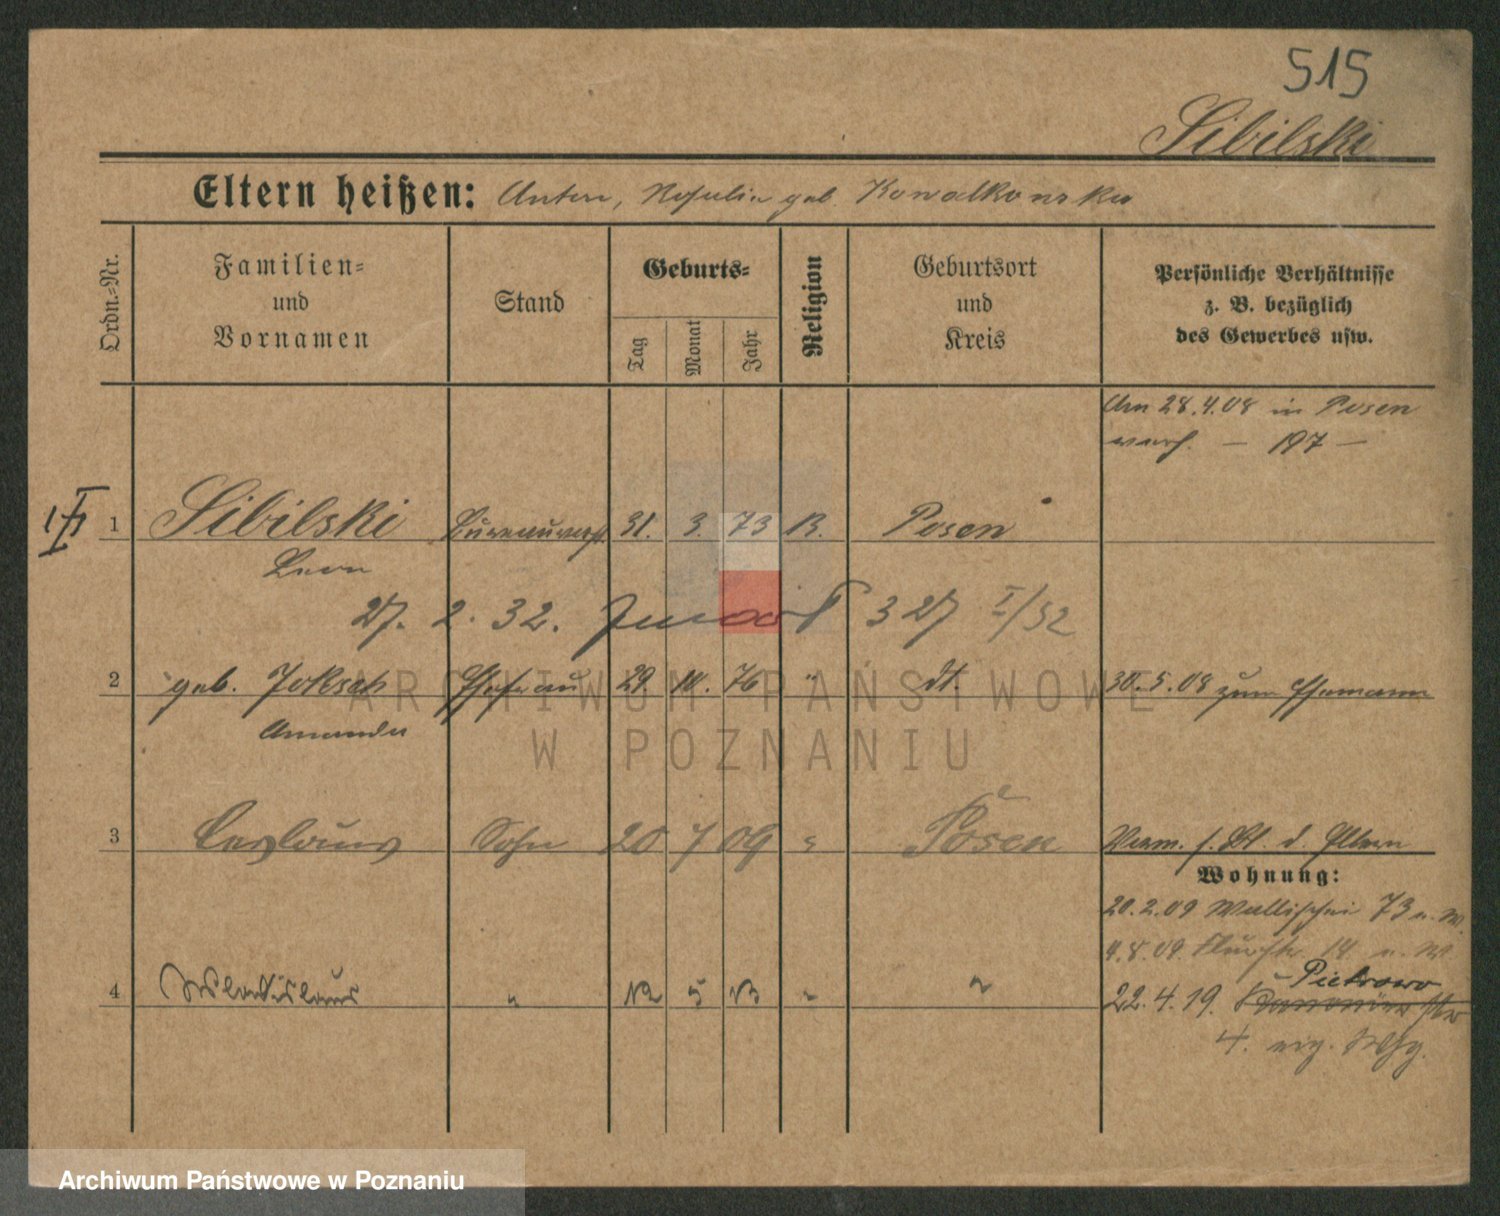 515
Sibilski
Eltern heißen: Anton, geb. Kowalkowska
Ordn.-Nr.
Familien-
und
Vornamen
Stand
Geburts-
Tag
Monat
Jahr
Religion
Geburtsort
und
Kreis
Persönliche Verhältnisse
z. B. bezüglich
des Gewerbes usw.
Am 28.4.08 in Posen
verh. — 197 —
1 Sibilski 31. 3. 73 Posen
Leon
27. 2. 32. 327 I/32
2 geb. Joksch Ehefrau 29 10. 76 " dt. 30.5.08 zum Ehemann
Amanda
3 Ceslaus Sohn 20 7 09 " Posen Verm. s. Bl. d. Eltern
Wohnung:
20.2.09 Wallischei 73
4.8.09. 14
Pietrowo
4 Wladislaus " 12 5 13 " 22.4.19.
4.
ARCHIWUM PAŃSTWOWE
W POZNANIU
Archiwum Państwowe w Poznaniu